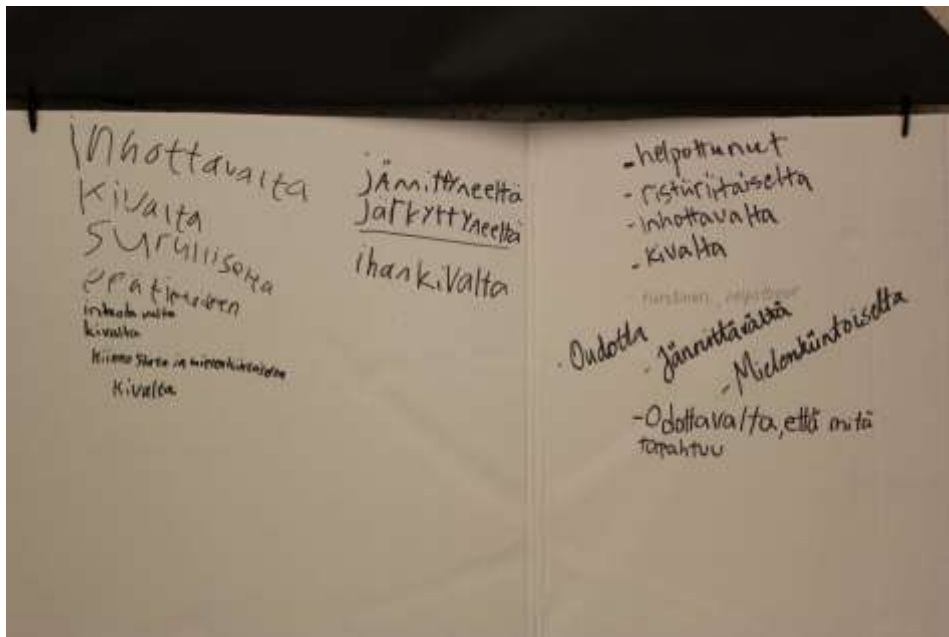 inhottavalta
kivalta
surullisetta
inhota valta
kivalta
kivalta
jännittyneeltä
järkyttyneeltä
ihan kivalta
- helpottunut
- ristiriitaiselta
- inhottavalta
- kivalta
- Oudolta
- Jännittävältä
- Mielenkiintoiselta
- Odottavalta, että mitä
tapahtuu